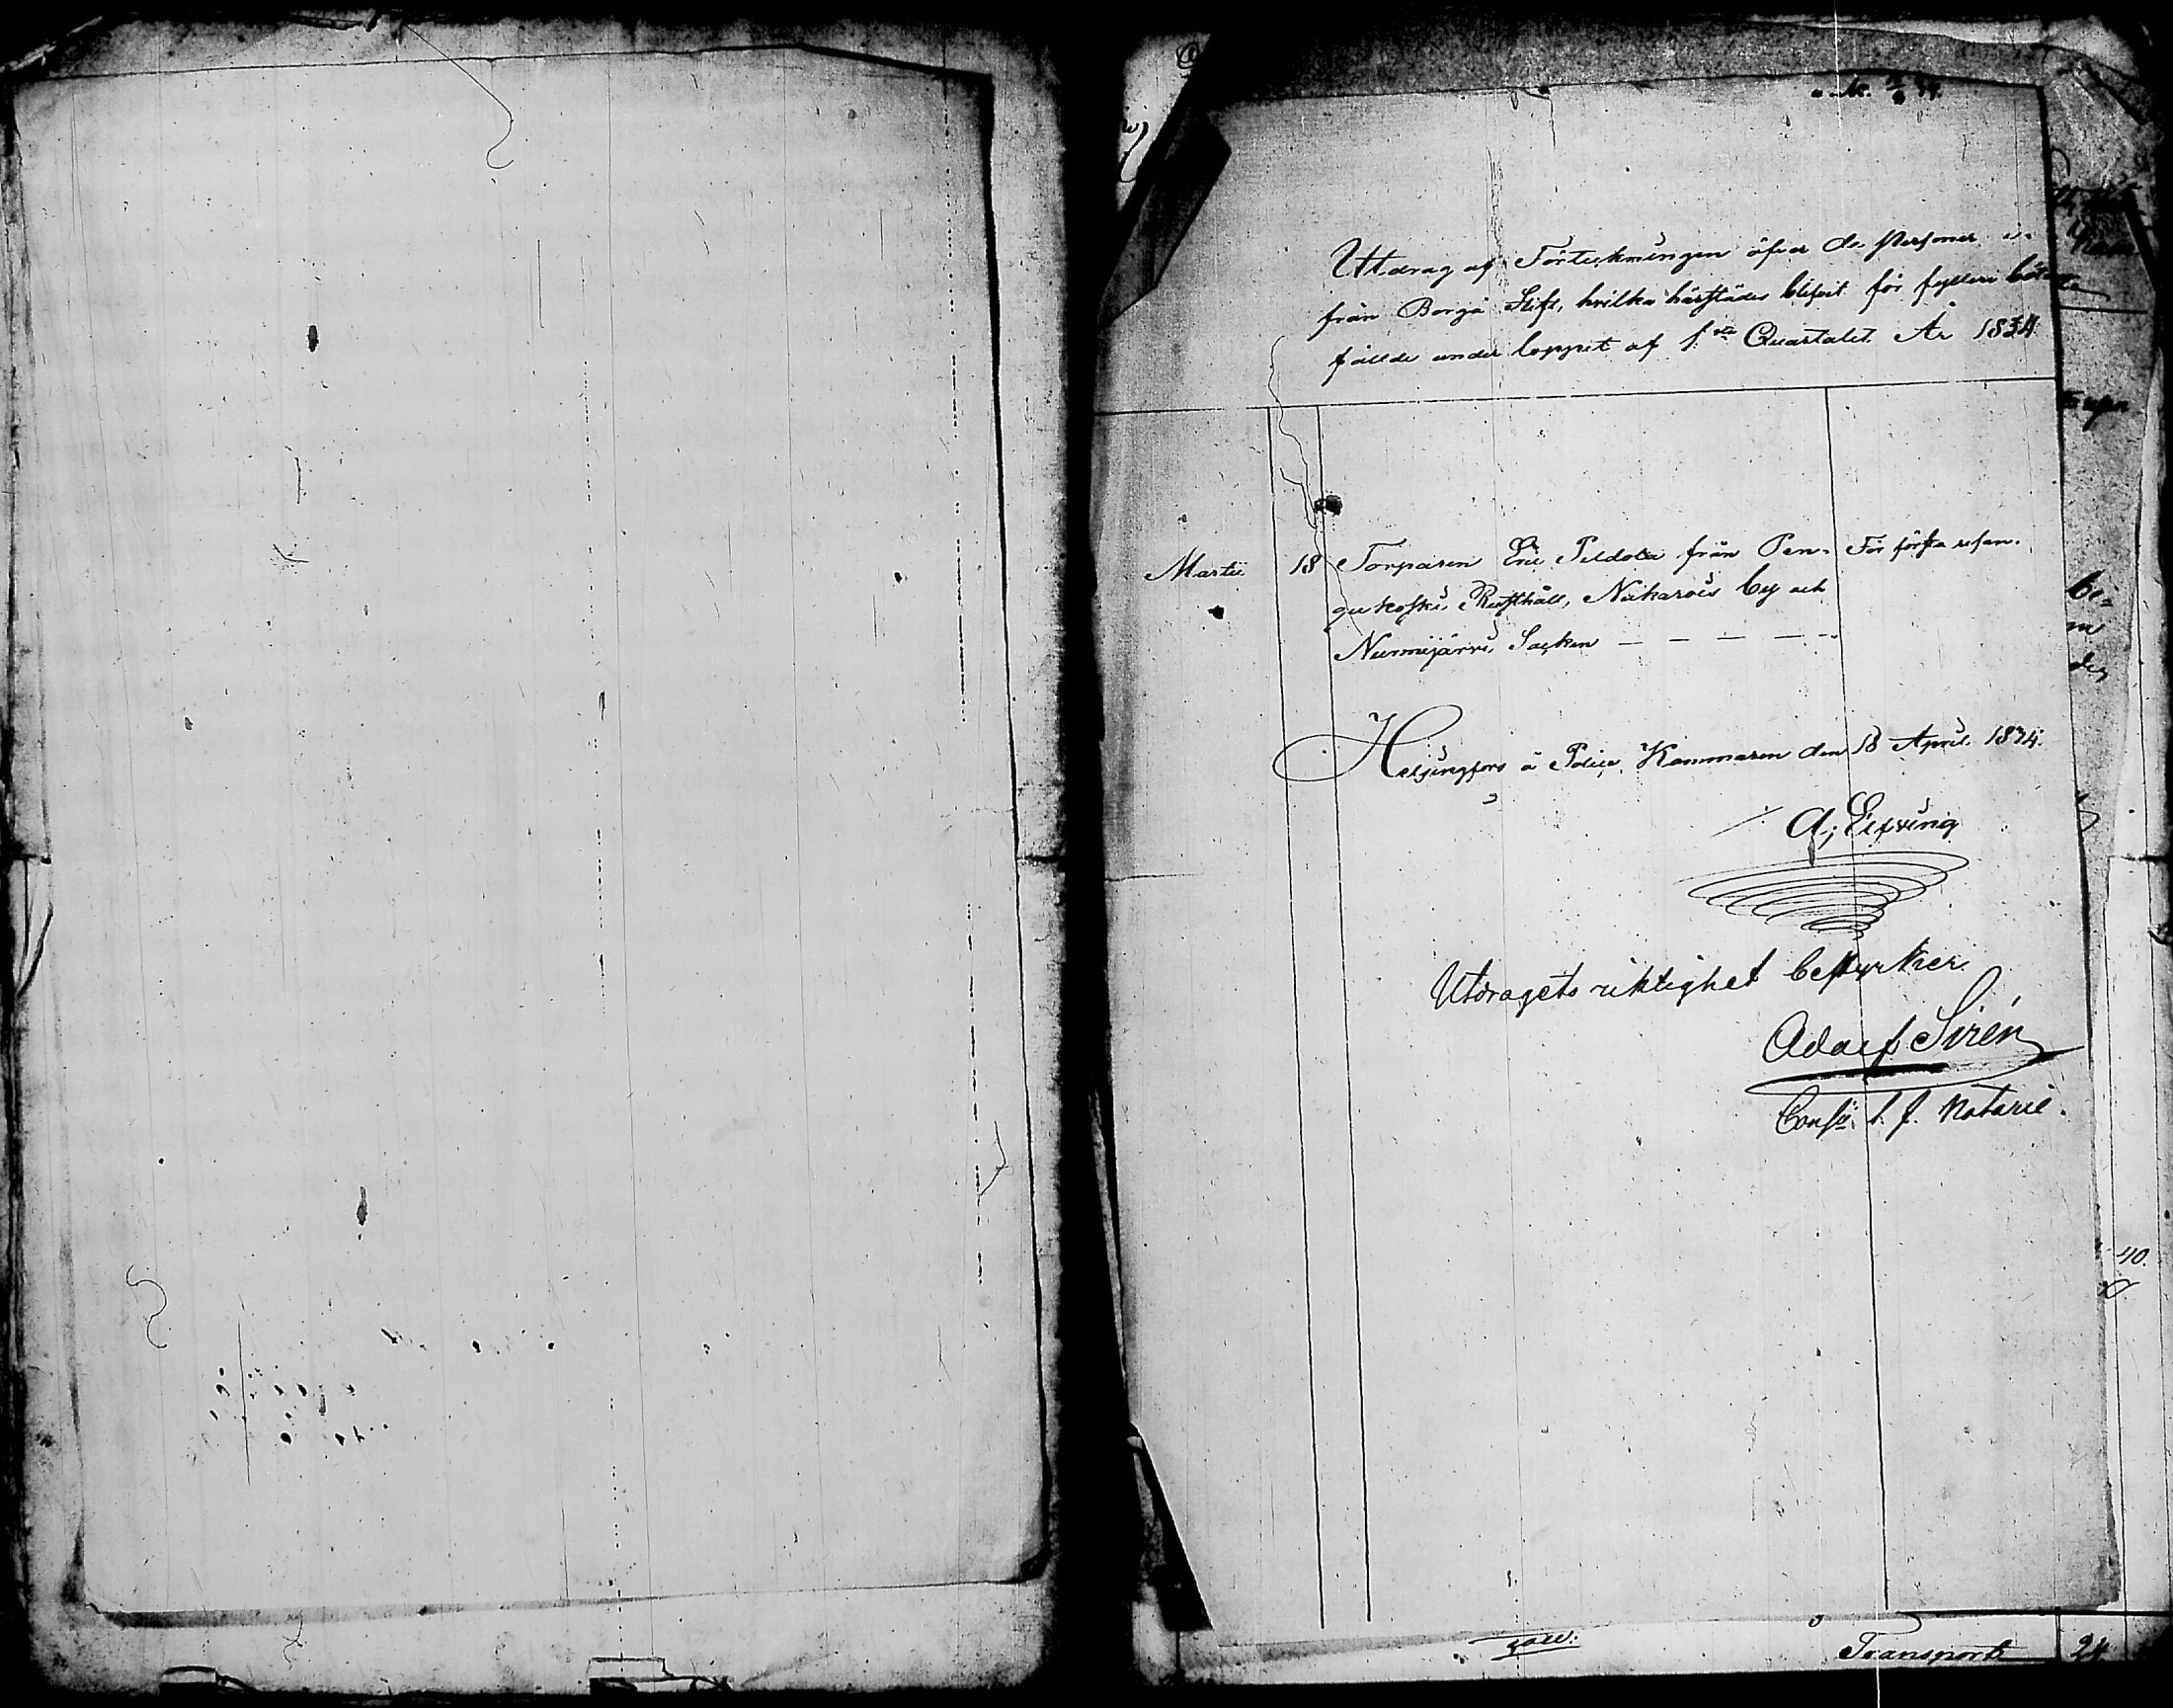 Utdrag af Förteckningen öfver de Personer
från Borgå Stift, hvilka härstädes blifvit för fylleri böt-
fällde under loppet af 1sta Quartalet År 1834
Martii 18 Torparen Eric Peldola från Pen- För första resan.
gukoski Rusthåll, Nukarois by och
Nurmijärvi Socken — — — — —
Helsingfors å Police Kammaren den 18 April 1834.
A; Elfving
Utdragets riktighet bestyrker
Adolf Sirén
Consii t. f. Notarie.
40.
Transport 24